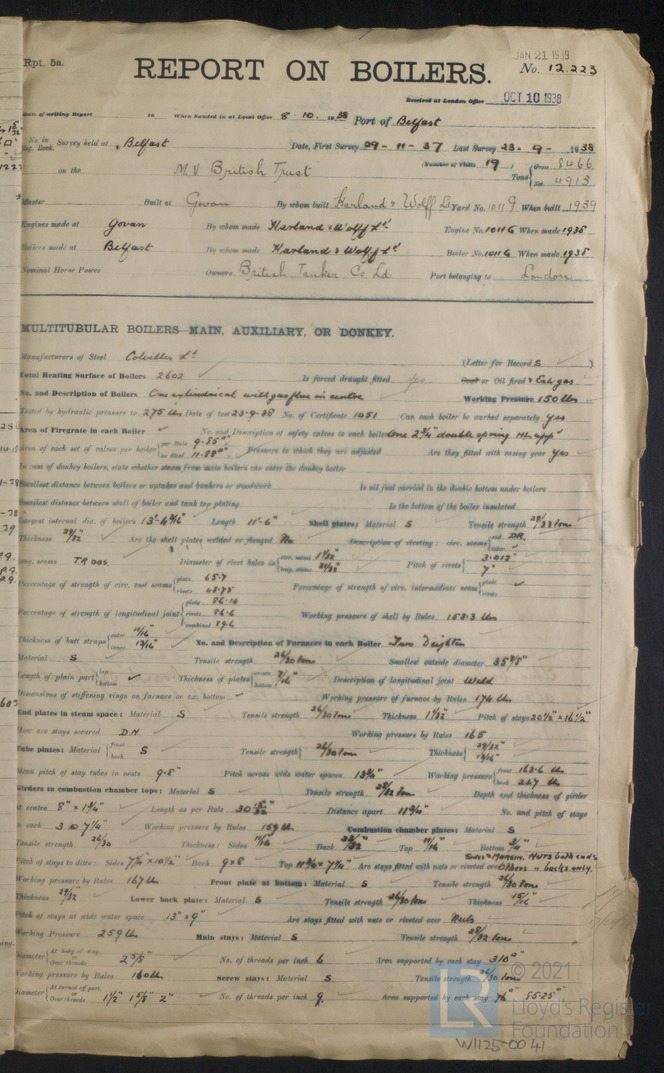 Rpt. 5a.
JAN 21 1939
REPORT ON BOILERS.
No. 12.223
Received at London Office OCT 10 1938
Date of writing Report 19 When handed in at Local Office 8.10.1938 Port of Belfast
No. in Reg. Book. Survey held at Belfast Date, First Survey 29-11-37 Last Survey 23-9-1938
on the M V British Trust (Number of Visits 19) Tons { Gross 8466
Net 4913
Master Built at Govan By whom built Harland & Wolff Ld Yard No. 1011 G When built 1939
Engines made at Govan By whom made Harland & Wolff Ld Engine No. 1011 G When made 1938
Boilers made at Belfast By whom made Harland & Wolff Ld Boiler No. 1011 G When made 1938
Nominal Horse Power Owners British Tanker Co Ld Port belonging to London
MULTITUBULAR BOILERS—MAIN, AUXILIARY, OR DONKEY.
Manufacturers of Steel Colvilles Ld (Letter for Record S)
Total Heating Surface of Boilers 2602 Is forced draught fitted Yes Coal or Oil fired & Exh gas
No. and Description of Boilers One cylindrical with gas flue in centre Working Pressure 150 lbs
Tested by hydraulic pressure to 275 lbs Date of test 23-9-38 No. of Certificate 1051 Can each boiler be worked separately Yes
Area of Firegrate in each Boiler No. and Description of safety valves to each boiler One 2¾" double spring
Area of each set of valves per boiler { per Rule 9.85
as fitted 11.88 Pressure to which they are adjusted Are they fitted with easing gear Yes
In case of donkey boilers, state whether steam from main boilers can enter the donkey boiler
Smallest distance between boilers or uptakes and bunkers or woodwork Is oil fuel carried in the double bottom under boilers
Smallest distance between shell of boiler and tank top plating Is the bottom of the boiler insulated
Largest internal dia. of boilers Length 11'-6" Shell plates: Material S Tensile strength 29/33 tons
Thickness 29/32 Are the shell plates welded or flanged No Description of riveting: circ. seams { end DR.
inter.
long. seams TR DBS. Diameter of rivet holes in { circ. seams
long. seams Pitch of rivets { 3.012"
7"
Percentage of strength of circ. end seams { plate 65.7
rivets 48.75 Percentage of strength of circ. intermediate seam { plate
rivets
Percentage of strength of longitudinal joint { plate 86.14
rivets 86.6
combined 89.6 Working pressure of shell by Rules 153.3 lbs
Thickness of butt straps { outer 11/16"
inner 13/16" No. and Description of Furnaces in each Boiler Two Deighton
Material S Tensile strength 26/30 tons Smallest outside diameter
Length of plain part { top
bottom Thickness of plates { crown
bottom 7/16" Description of longitudinal joint Weld
Dimensions of stiffening rings on furnace or c.c. bottom Working pressure of furnace by Rules 174 lbs
End plates in steam space: Material S Tensile strength 26/30 tons Thickness 1 1/32" Pitch of stays 20½" x 16½"
How are stays secured D.N. Working pressure by Rules 165
Tube plates: Material { front
back S Tensile strength { 26/30 tons Thickness { 29/32"
13/16"
Mean pitch of stay tubes in nests 9.8" Pitch across wide water spaces 13¾" Working pressure { front 163.6 lbs
back 247 lbs
Girders to combustion chamber tops: Material S Tensile strength 28/32 tons Depth and thickness of girder
at centre 8" x 1¾" Length as per Rule Distance apart 11¾" No. and pitch of stays
in each 3 @ 7¼" Working pressure by Rules 159 lb. Combustion chamber plates: Material S
Tensile strength 26/30 Thickness: Sides 11/16" Back Top 11/16" Bottom
Pitch of stays to ditto: Sides 7¼" x 10½" Back 9 x 8 Top 11¾" x 7¼" Are stays fitted with nuts or riveted over Sides & Margin, Nuts both ends
Others in backs only.
Working pressure by Rules 167 lb Front plate at bottom: Material S Tensile strength 26/30 tons
Thickness 29/32 Lower back plate: Material S Tensile strength 26/30 tons Thickness 15/16"
Pitch of stays at wide water space 13" x 9" Are stays fitted with nuts or riveted over Nuts
Working Pressure 259 lb Main stays: Material S Tensile strength 28/32 tons
Diameter { At body of stay,
or
Over threads 2⅝" No. of threads per inch 6 Area supported by each stay 310"
Working pressure by Rules 160 lb Screw stays: Material S Tensile strength 26/30 tons
Diameter { At turned off part,
or
Over threads 1½" 1⅝" 2" No. of threads per inch 9 Area supported by each stay 76" 85.25"
LR
© 2021
Lloyd's Register
Foundation
W1125-0041